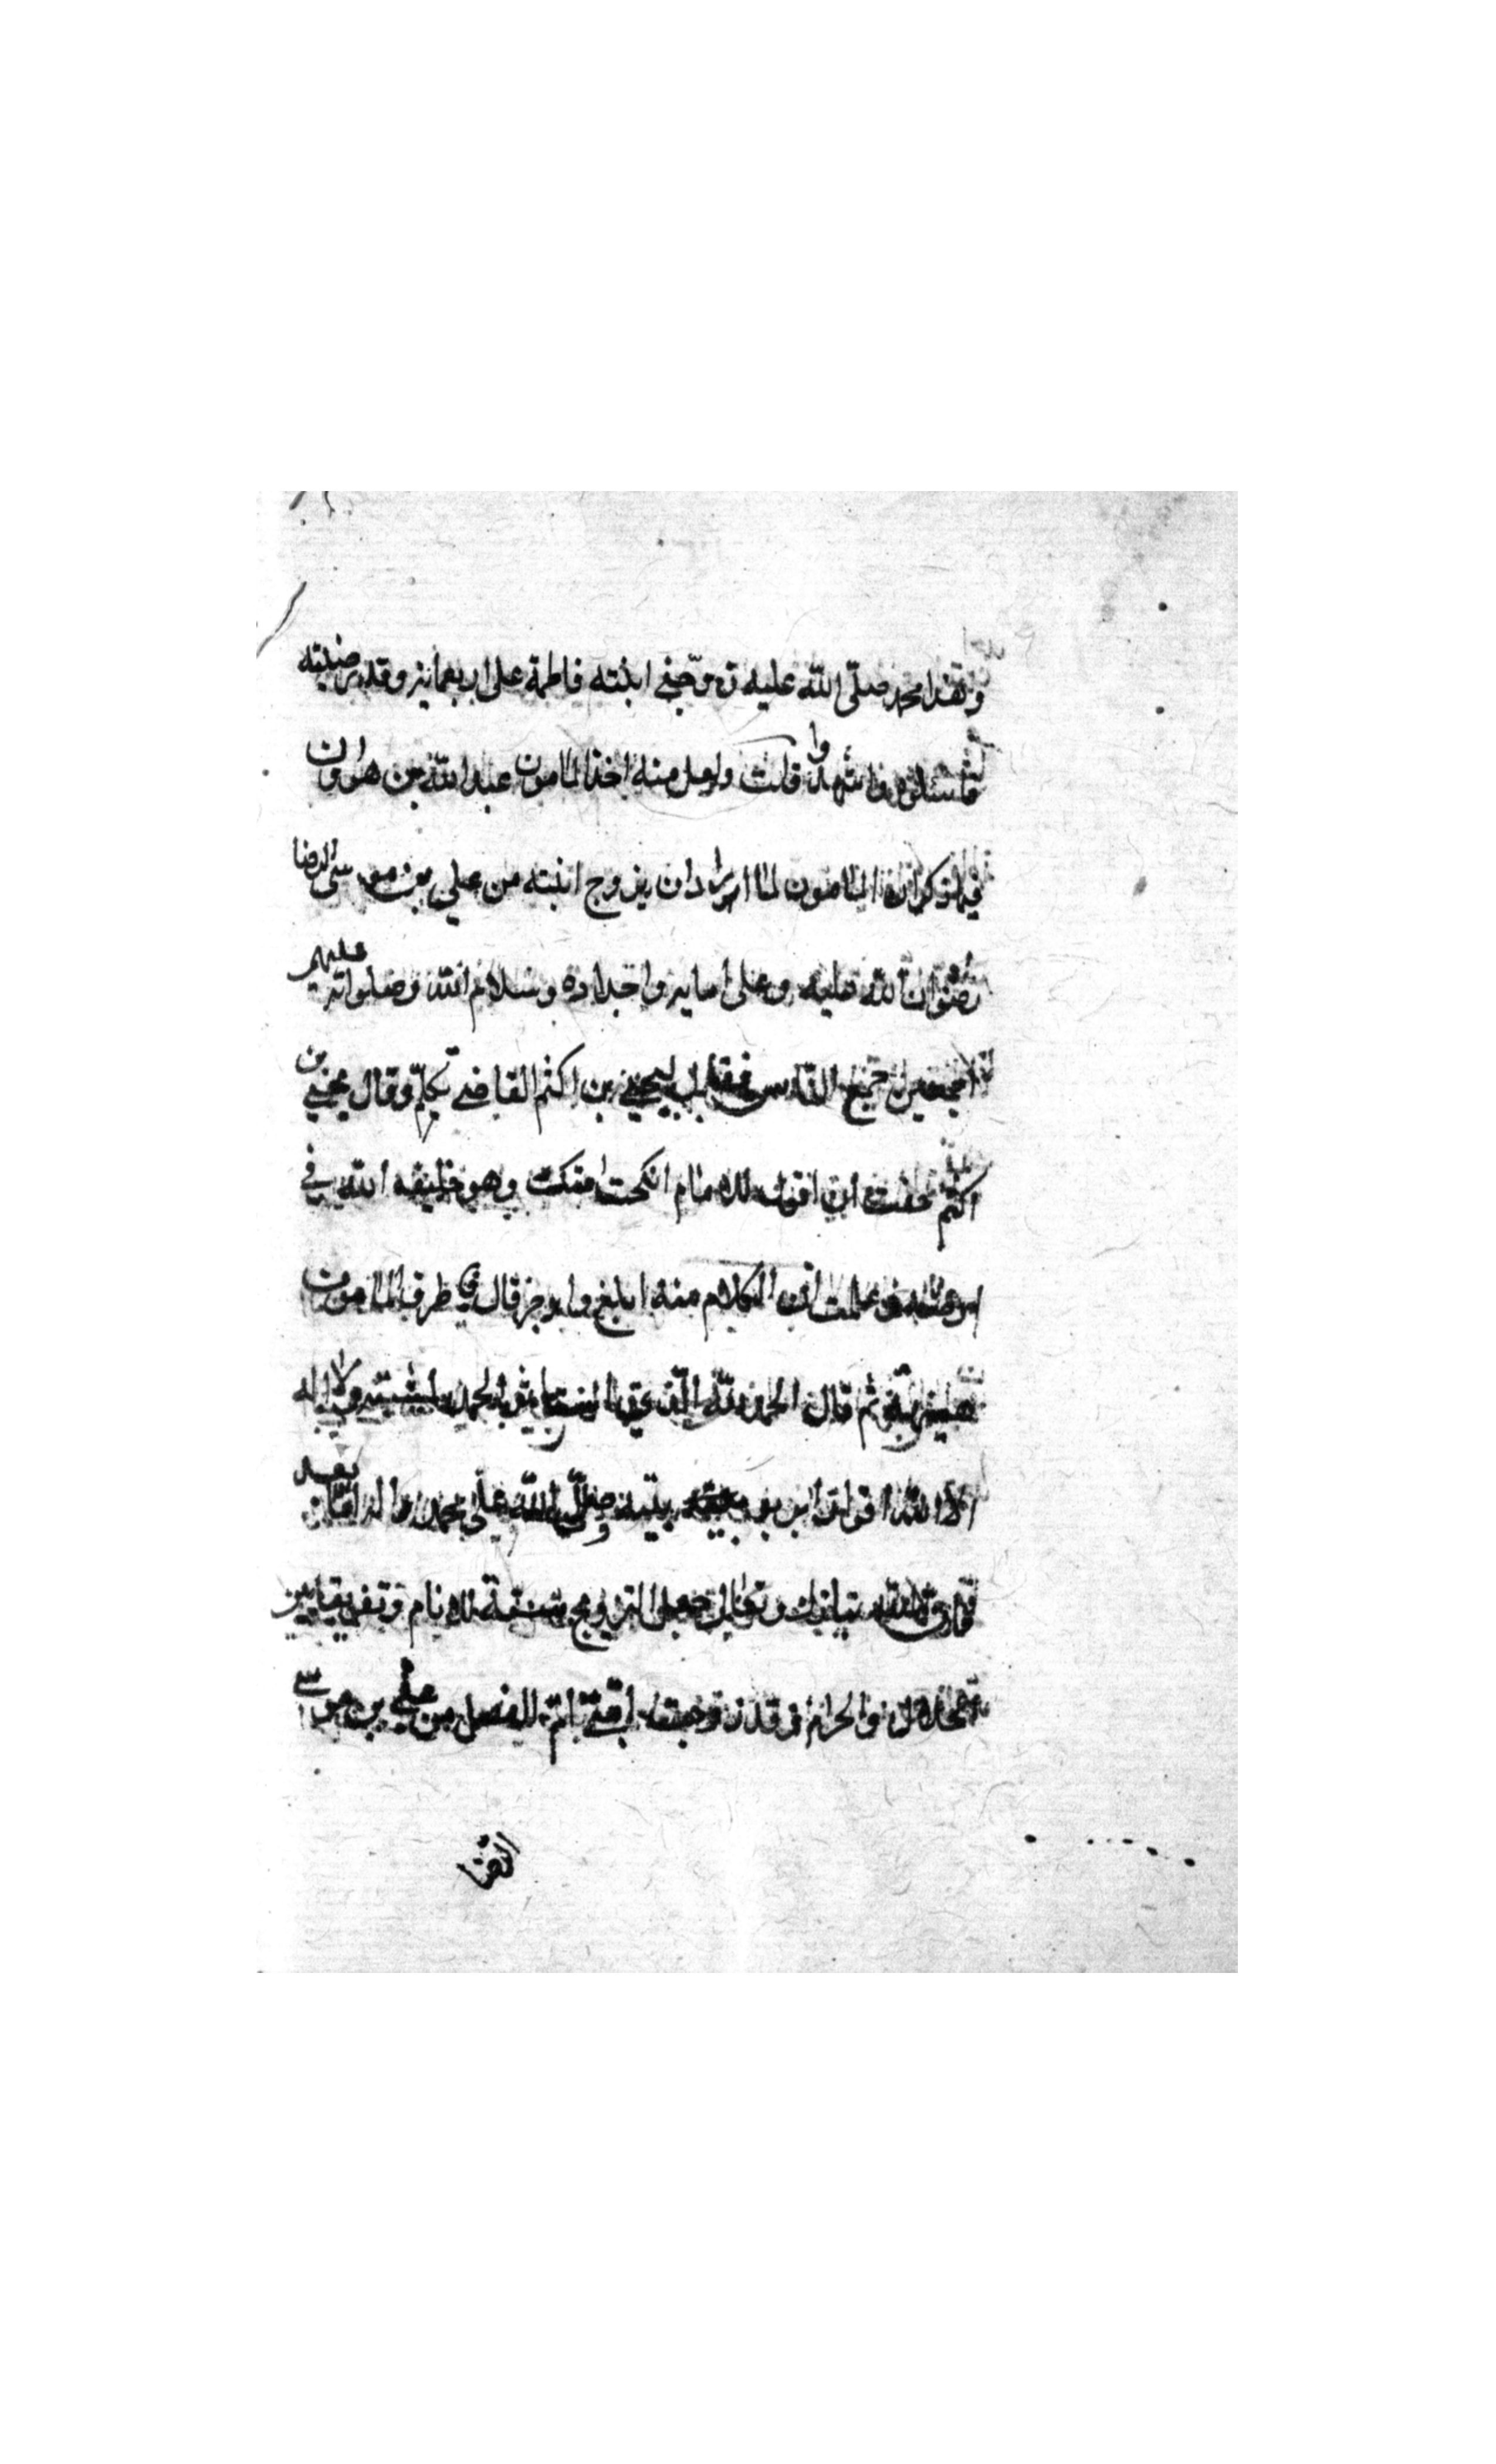 وهذا محمد صلّى اللّه عليه زوّجني ابنته فاطمة على اربعماية وقد رضيته
فاسئلوه واشهدوا قلت ولعل منه اخذ المامون عبد اللّه بن هارون
فيما ذكر ان المامون لما اراد ان يزوج ابنته من علي بن موسى الرضا
رضوان اللّه عليه وعلى اباىه واجداده وسلام اللّه وصلواته عليهم
اجمعين جمع الناس فقال ليحيى بن اكثم القاضي تكلم وقال يحيى بن
اكثم خفت ان اقول للامام انكحت امتك وهو خليفه اللّه في
ارضه فعلمت ان الكلام منه ابلغ واوجز قال فاطرق المامون
ثم قال الحمد للّه الذي بمشيته ولا اله
الا اللّه اقرارا بربوبيته وصلّى اللّه على محمد واله اما بعد
فان اللّه تبارك وتعالى جعل التزويج للانام وتفريقا بين
الحلال والحرام وقد زوجت ابنتي ام الفضل من علي بن موسى
الرضا